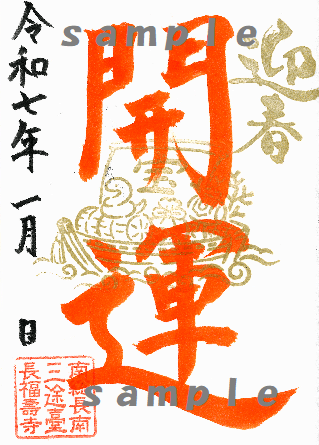 sample
迎春
開運
宝
令和七年 一月 日
南総長南
三途臺
長福壽寺
sample